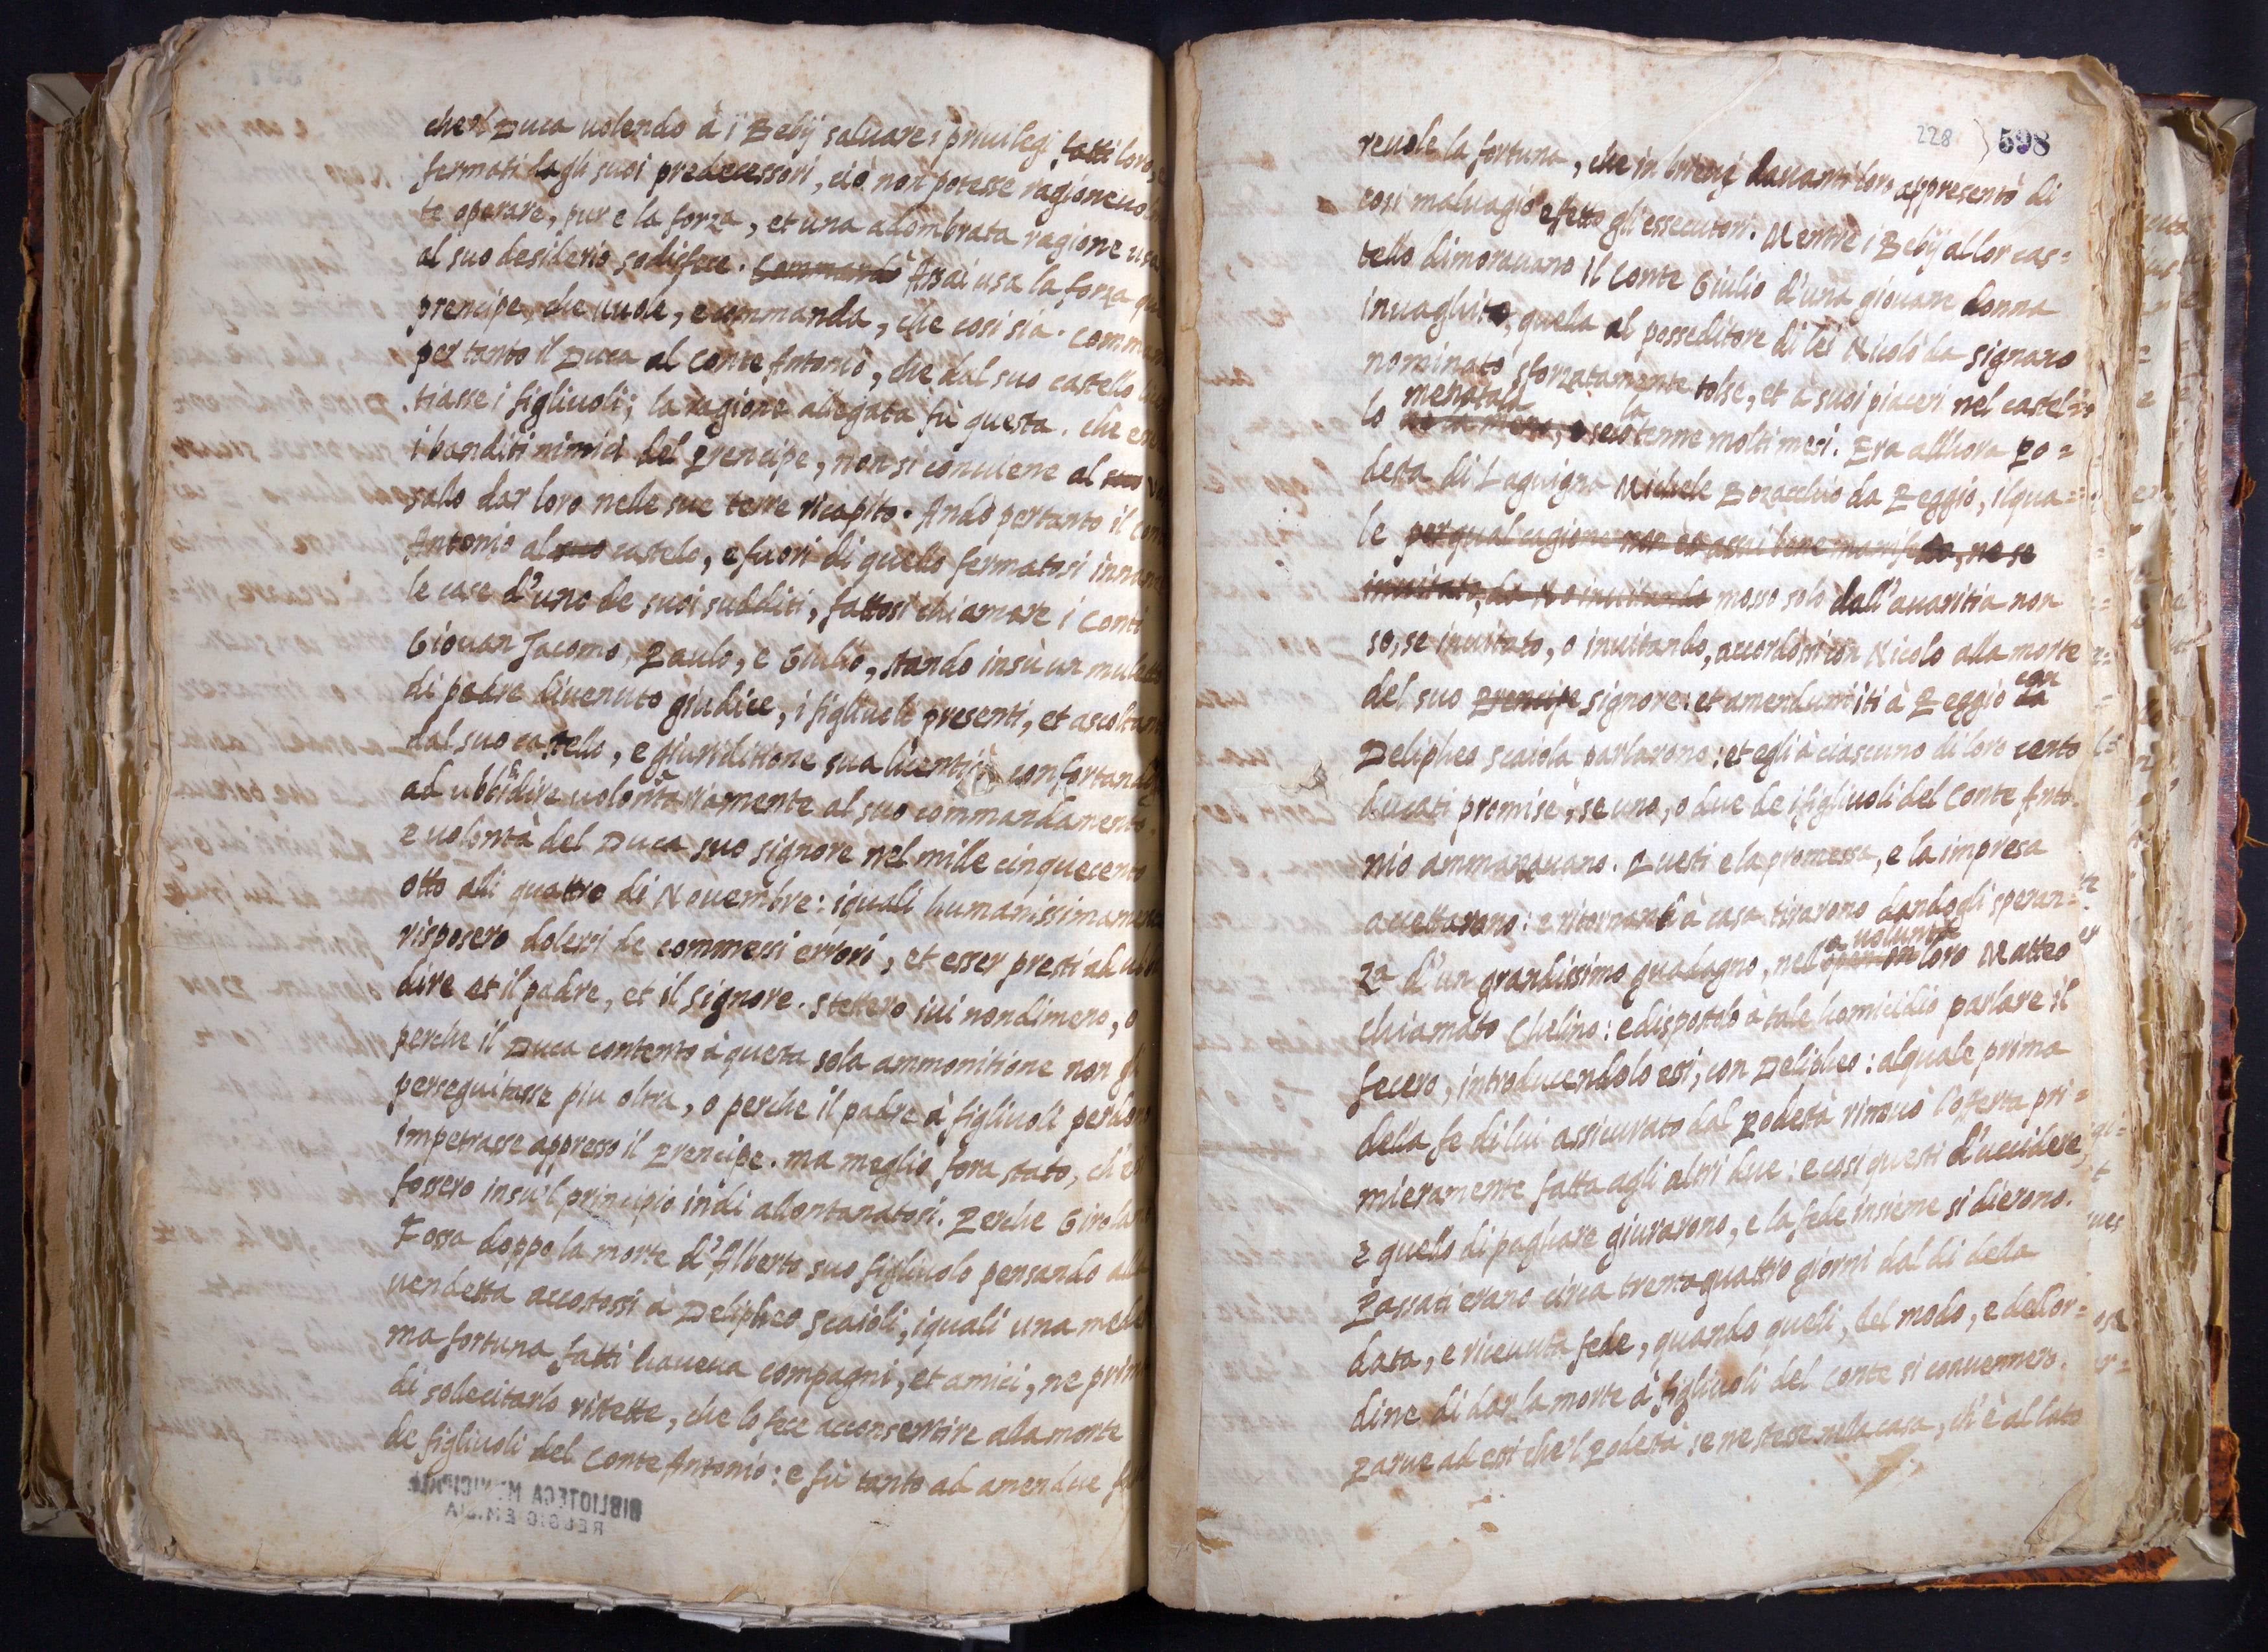 che'l Duca volendo à i Bebij saluare i priuilegi fatti loro, e
fermati dagli suoi predecessori, ciò non potesse ragioneuol
te operare, pur e la forza, et una adombrata ragione usa
al suo desiderio sodisfece. Commandò Assai usa la forza que
prencipe, che uuole, e commanda, che così sia. Comman
per tanto il Duca al Conte Antonio, che dal suo castello lice
tiasse i figliuoli; la ragione allegata fù questa. che
i banditi nimici del Prencipe, non si conuiene al suo va
sallo dar loro nelle sue terre ricapito. Andò pertanto il con
Antonio al suo castelo, e fuori di quello fermatosi innan
le case d'uno de suoi sudditi, fattosi chiamare i Conti
Giouan Jacomo, Paulo, e Giulio, stando insù un muletto
di padre diuenuto giudice, i figliuoli presenti, et ascoltant
dal suo castello, e giurisdittione sua licentiò confortando
ad ubbidire uolontariamente al suo commandamento
e uolontà del Duca suo signore nel mille cinquecento
otto alli quattro di Nouembre: iquali humanissimamente
risposero dolersi de commessi errori, et esser presti ad ubbi
dire et il padre, et il signore. Stettero iui nondimeno, o
perche il Duca contento à questa sola ammonitione non gli
perseguitasse piu oltra, o perche il padre à figliuoli perdon
impetrasse appresso il Prencipe. ma meglio fora stato, ch'es
fossero insu'l principio indi allontanatosi. Perche Girolam
Fossa doppo la morte d'Alberto suo figliuolo pensando alla
uendetta accostossi à Delipheo Scaioli, iquali una mede
ma fortuna fatti haueua compagni, et amici, ne prim
di solecitarlo ristette, che lo fece acconsentire alla morte
de figliuoli del Conte Antonio: e fù tanto ad amendue f
BIBLIOTECA MUNICIPALE
REGGIO EMILIA
228 598
reuole la fortuna, che in breue dauanti loro appresentò di
così maluagio efetto gli essecutori. Mentre i Bebij al lor cas=
tello dimorauano il Conte Giulio d'una giouane donna
inuaghito, quella al posseditore di lei Nicolò da Signano
nominato sforzatamente tolse, et a suoi piaceri nel castel=
menatala la
lo seco tenne molti mesi. Era allhora Po=
destà di Laguigna Michele Bozacchio da Reggio, il qua=
le per qual cagione non so assai bene manifesto, ne se
inuitato, da No inuitando mosso solo dall'auaritia non
so, se inuitato, o inuitando, accordossi con Nicolo alla morte
con
del suo Prencipe signore: et amenduni iti à Reggio da
Delipheo Scaiola parlarono: et egli à ciascuno di loro cento
ducati promise, se uno, o due de i figliuoli del Conte Anto=
nio ammazauano. Questi e la promessa, e la impresa
accettarono: e ritornanti à casa tirarono dandogli speran=
a uoluntà
za d'un grandissimo guadagno, nel loro Matteo
chiamato Chelino: e dispostolo à tale homicidio parlare il
fecero, introducendolo essi, con Delipheo: alquale prima
della fe di lui assicurato dal Podestà rinouò l'oferta pri=
mieramente fatta agli altri due: e così questi d'uccidere,
e quello di pagare giurarono, e la fede insieme si dierono.
Passati erano circa trentaquattro giorni dal di della
data, e riceuuta fede, quando quelli, del modo, e dell'or=
dine di dar la morte à figliuoli del Conte si conuennero.
Parue ad essi che'l Podestà se ne stesse nella casa, ch'è allato